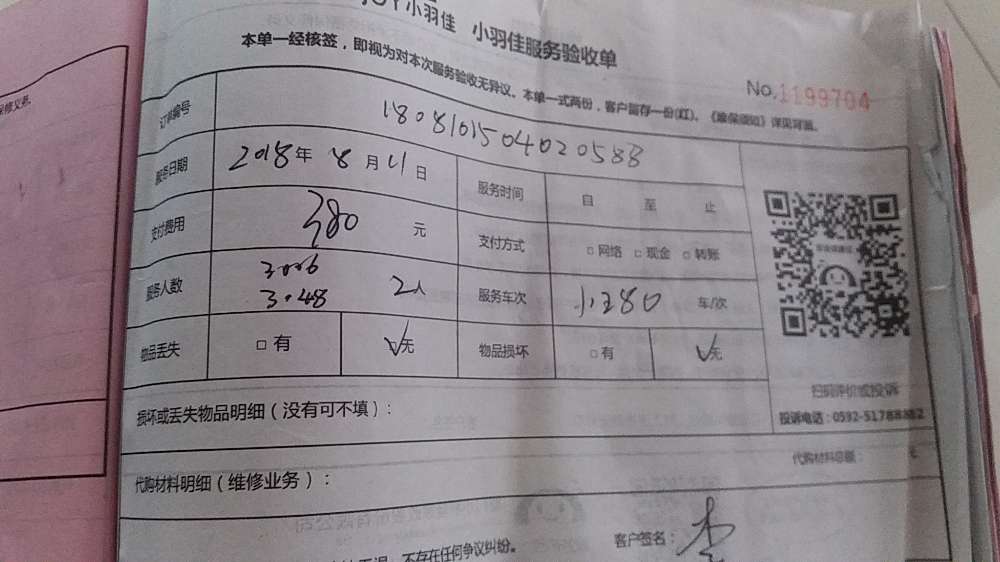 JOY小羽佳 小羽佳服务验收单
本单一经核签，即视为对本次服务验收无异议。本单一式两份，客户留存一份(红)。《维保须知》详见背面。
No.1199704
订单编号 180810150402058B
服务日期 2018年 8月11日 服务时间 自 至 止
支付费用 380 元 支付方式 □网络 □现金 □转账
服务人数 3006 3048 2人 服务车次 小王80 车/次
物品丢失 □有 ☑无 物品损坏 □有 ☑无
扫码评价或投诉
投诉电话：0592-51788882
损坏或丢失物品明细（没有可不填）：
代购材料总额： 元
代购材料明细（维修业务）：
客户签名：李
不存在任何争议纠纷。
保修义务。